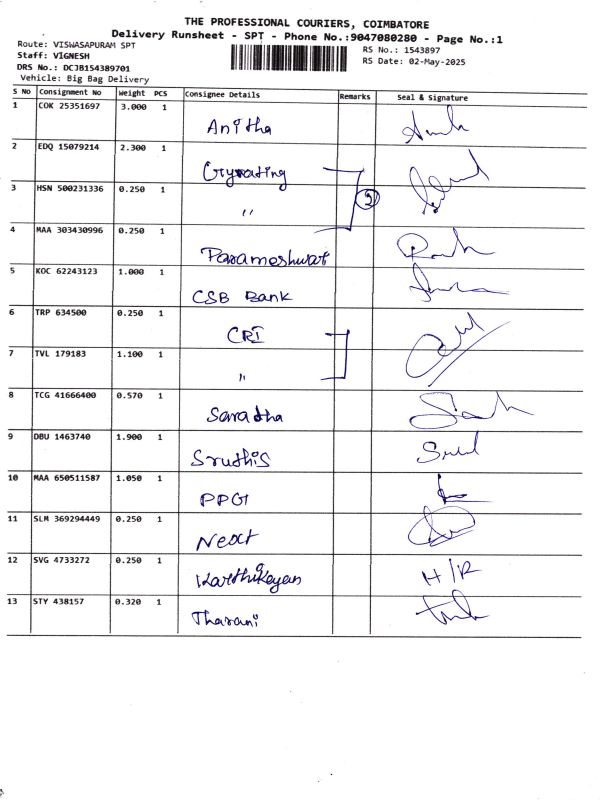 THE PROFESSIONAL COURIERS, COIMBATORE
Delivery Runsheet - SPT - Phone No.:9047080280 - Page No.:1
Route: VISWASAPURAM SPT
RS No.: 1543897
Staff: VIGNESH
RS Date: 02-May-2025
DRS No.: DCJB154389701
Vehicle: Big Bag Delivery
S No Consignment No Weight PCS Consignee Details Remarks Seal & Signature
1 COK 25351697 3.000 1 Anitha
2 EDQ 15079214 2.300 1 Gyrating
3 HSN 500231336 0.250 1 " 2
4 MAA 303430996 0.250 1 Parameshwar
5 KOC 62243123 1.000 1 CSB Bank
6 TRP 634500 0.250 1 CRI
7 TVL 179183 1.100 1 "
8 TCG 41666400 0.570 1 Saradha
9 DBU 1463740 1.900 1 Sruthis
10 MAA 650511587 1.050 1 PPG
11 SLM 369294449 0.250 1 Next
12 SVG 4733272 0.250 1 Karthikeyan H/R
13 STY 438157 0.320 1 Tharani